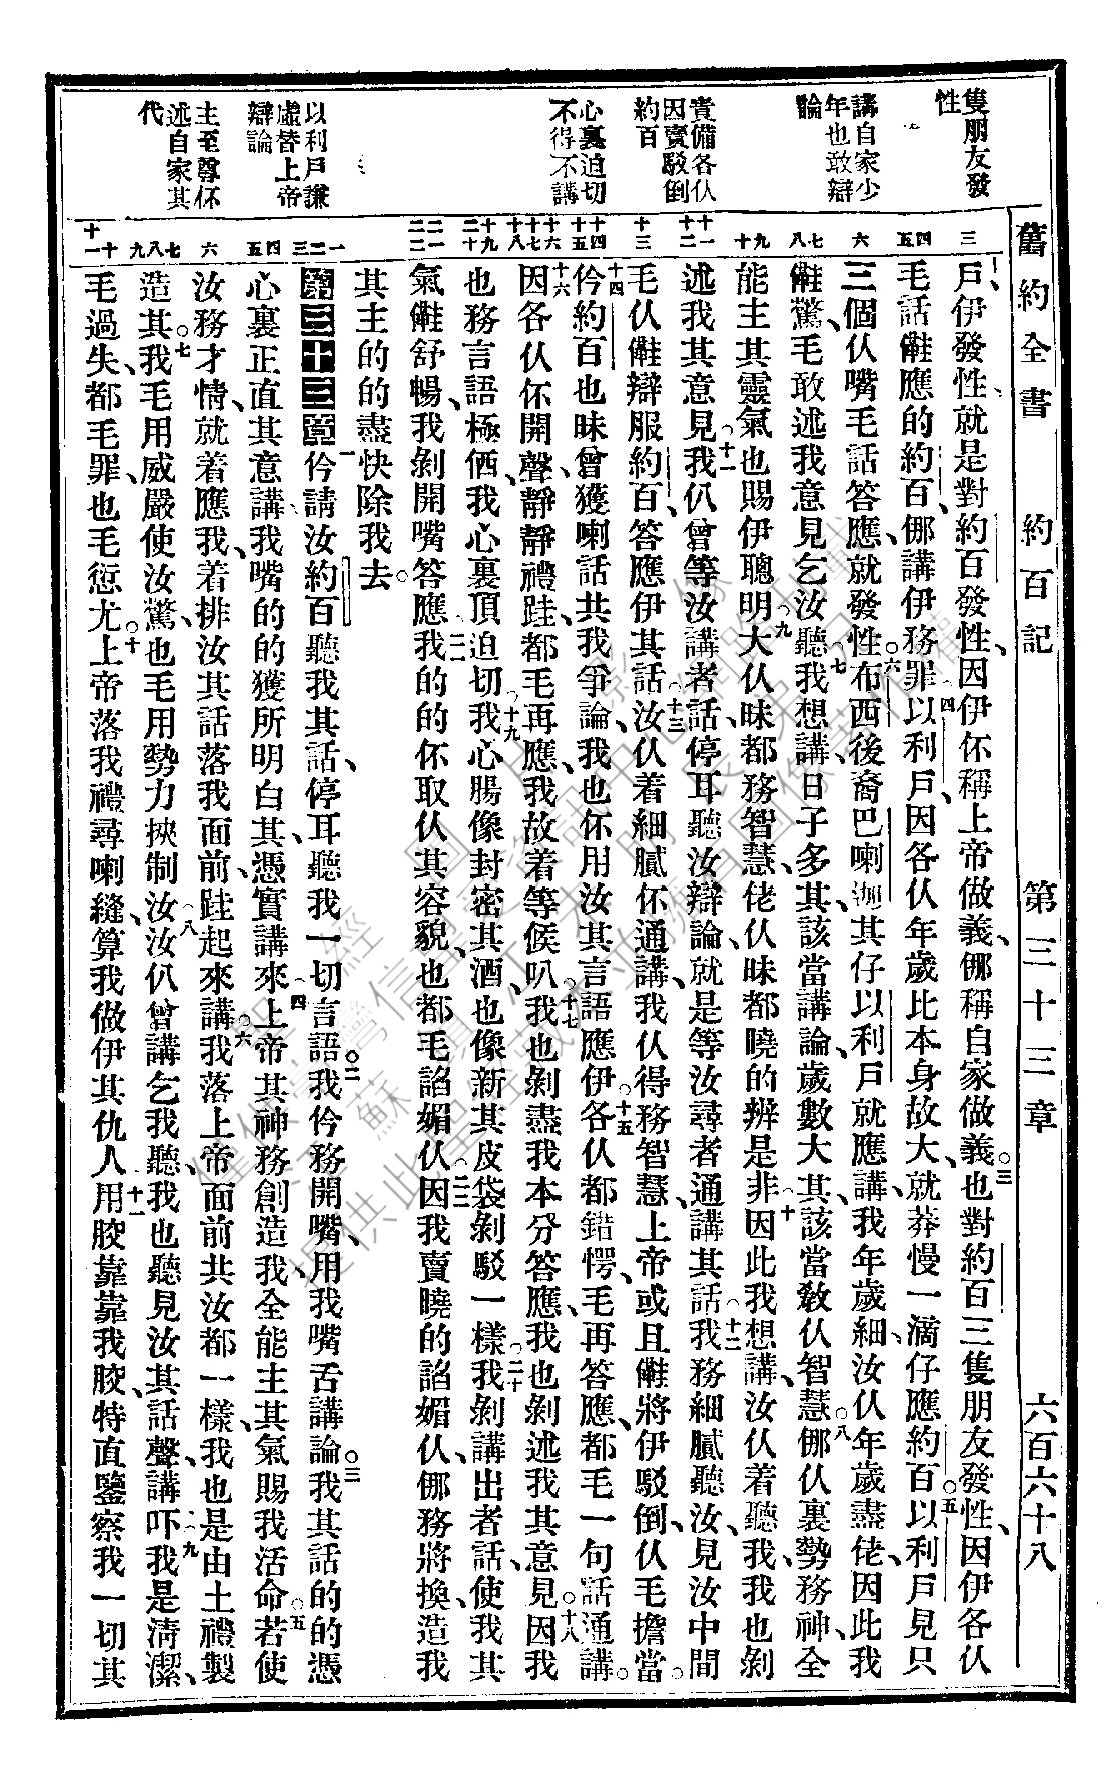 舊約全書 約百記 第三十三章 六百六十八
隻朋友發
性
講自家少
年也敢辯
論
責備各仈
因賣駁倒
約百
心裏迫切
不得不講
以利戶謙
虛替上帝
辯論
主至尊伓
述自家其
代
三
四 五
六
七 八
九 十
十一 十二
十三
十四 十五
十六 十七 十八
十九 二十
二一 二二
一 二 三
四 五
六
七 八 九
十 十一
戶伊發性就是對約百發性、因伊伓稱上帝做義、𠆧稱自家做義。三也對約百三隻朋友發性、因伊各仈
毛話𠆧應的約百、𠆧講伊務罪四以利戶因各仈年歲比本身故大、就莽慢一滴仔應約百。五以利戶見只
三個仈嘴毛話答應、就發性。六布西後裔巴喇㴓其仔以利戶就應講、我年歲細、汝仈年歲盡佬、因此我
驚、毛敢述我意見乞汝聽、七我想講、日子多其、該當講論、歲數大其、該當敎仈智慧。八𠆧仈裏勢務神、全
能主其靈氣也賜伊聰明。九大仈昧都務智慧、佬仈昧都曉的辨是非、十因此我想講、汝仈着聽我、我也剝
述我其意見。十一我仈曾等汝講者話、停耳聽汝辯論、就是等汝尋者通講其話、十二我務細膩聽汝、見汝中間
毛仈辯服約百答應伊其話、十三汝仈着細膩伓通講、我仈得務智慧、上帝或且將伊駁倒、仈毛擔當。
十四伱約百也昧曾獲喇話共我爭論、我也伓用汝其言語應伊。十五各仈都錯愕、毛再答應、都毛一句話通講。
十六因各仈伓開聲、靜靜禮跬、都毛再應、我故着等候叭、十七我也剝盡我本分答應、我也剝述我其意見。十八因我
也務言語極価、我心裏頂迫切、十九我心腸像封密其酒、也像新其皮袋剝駁一樣、二十我剝講出者話、使我其
氣舒暢、我剝開嘴答應、二一我的的伓取仈其容貌、也都毛諂媚仈、二二因我賣曉的諂媚仈、𠆧務將換、造我
其主的的盡快除我去。
第三十三章 一伱請汝約百聽我其話、停耳聽我一切言語。二我伱務開嘴、用我嘴舌講論。三我其話的的憑
心裏正直其意講、我嘴的的獲所明白其、憑實講來、四上帝其神務創造我、全能主其氣賜我活命。五若使
汝務才情、就着應我、着排汝其話落我面前、跬起來講。六我落上帝面前共汝都一樣、我也是由土禮製
造其。七我毛用威嚴使汝驚、也毛用勢力挾制汝、八汝仈曾講乞我聽、我也聽見汝其話聲、講吓、九我是清潔、
毛過失、都毛罪、也毛愆尤。十上帝落我禮尋喇縫、算我做伊其仇人、十一用骹靠靠我骹、特直鑒察我一切其